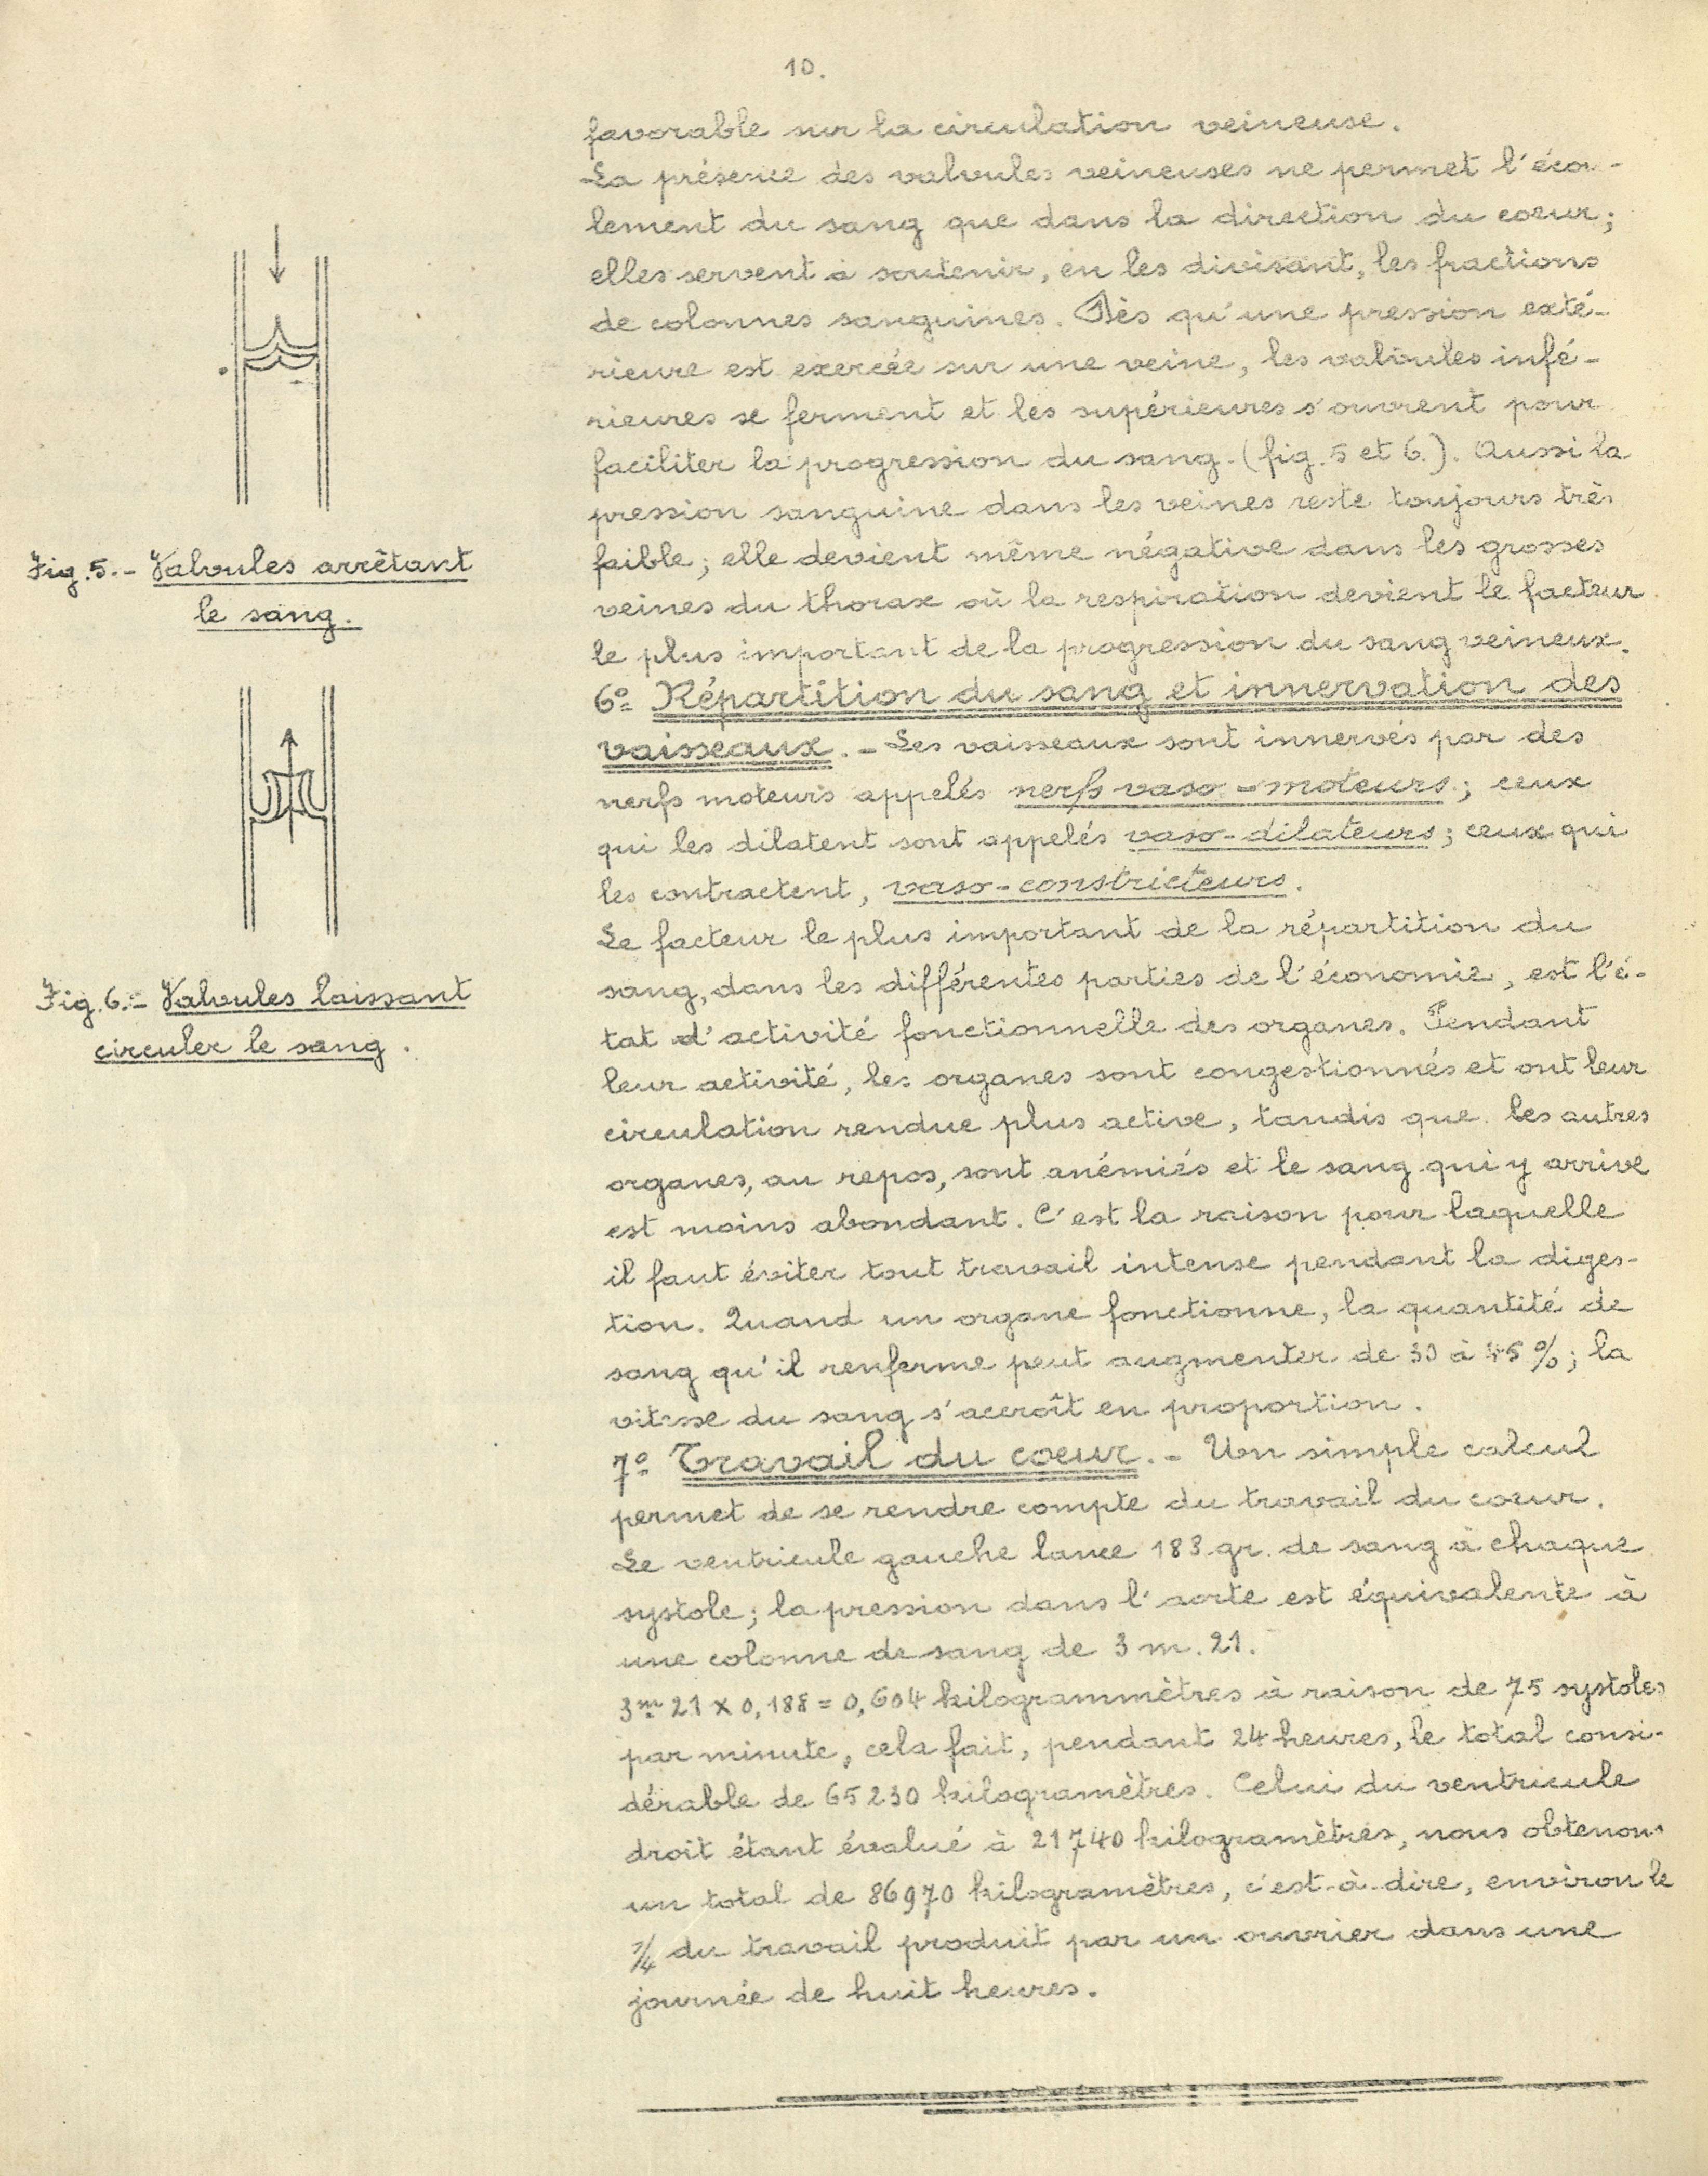 10.
favorable sur la circulation veineuse.
La présence des valvules veineuses ne permet l'écou-
lement du sang que dans la direction du coeur;
elles servent à soutenir, en les divisant, les fractions
de colonnes sanguines. Dès qu'une pression exté-
rieure est exercée sur une veine, les valvules infé-
rieures se ferment et les supérieures s'ouvrent pour
faciliter la progression du sang. (fig. 5 et 6.). Aussi la
pression sanguine dans les veines reste toujours très
faible; elle devient même négative dans les grosses
veines du thorax où la respiration devient le facteur
le plus important de la progression du sang veineux.
6° Répartition du sang et innervation des
vaisseaux. - Les vaisseaux sont innervés par des
nerfs moteurs appelés nerfs vaso-moteurs; ceux
qui les dilatent sont appelés vaso-dilateurs; ceux qui
les contractent, vaso-constricteurs.
Le facteur le plus important de la répartition du
sang, dans les différentes parties de l'économie, est l'é-
tat d'activité fonctionnelle des organes. Pendant
leur activité, les organes sont congestionnés et ont leur
circulation rendue plus active, tandis que les autres
organes, au repos, sont anémiés et le sang qui y arrive
est moins abondant. C'est la raison pour laquelle
il faut éviter tout travail intense pendant la diges-
tion. Quand un organe fonctionne, la quantité de
sang qu'il renferme peut augmenter de 30 à 45 %; la
vitesse du sang s'accroît en proportion.
7° Travail du coeur. - Un simple calcul
permet de se rendre compte du travail du coeur.
Le ventricule gauche lance 183 gr. de sang à chaque
systole; la pression dans l'aorte est équivalente à
une colonne de sang de 3 m. 21.
3m 21 x 0,188 = 0,604 kilogrammètres à raison de 75 systoles
par minute, cela fait, pendant 24 heures, le total consi-
dérable de 65230 kilogramètres. Celui du ventricule
droit étant évalué à 21740 kilogramètres, nous obtenons
un total de 86970 kilogramètres, c'est-à-dire, environ le
1/4 du travail produit par un ouvrier dans une
journée de huit heures.
Fig. 5. - Valvules arrêtant
le sang.
Fig. 6. - Valvules laissant
circuler le sang.